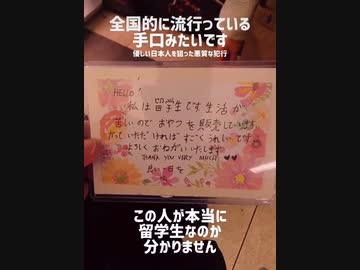 全国的に流行っている
手口みたいです
優しい日本人を狙った悪質な犯行
HELLO!
私は留学生です生活が
苦しいので おやつを販売しています
かっていただければすごくうれしいです
よろしくおねがいいたします
THANK YOU VERY MUCH ♥♥
良い一日を
この人が本当に
留学生なのか
分かりません